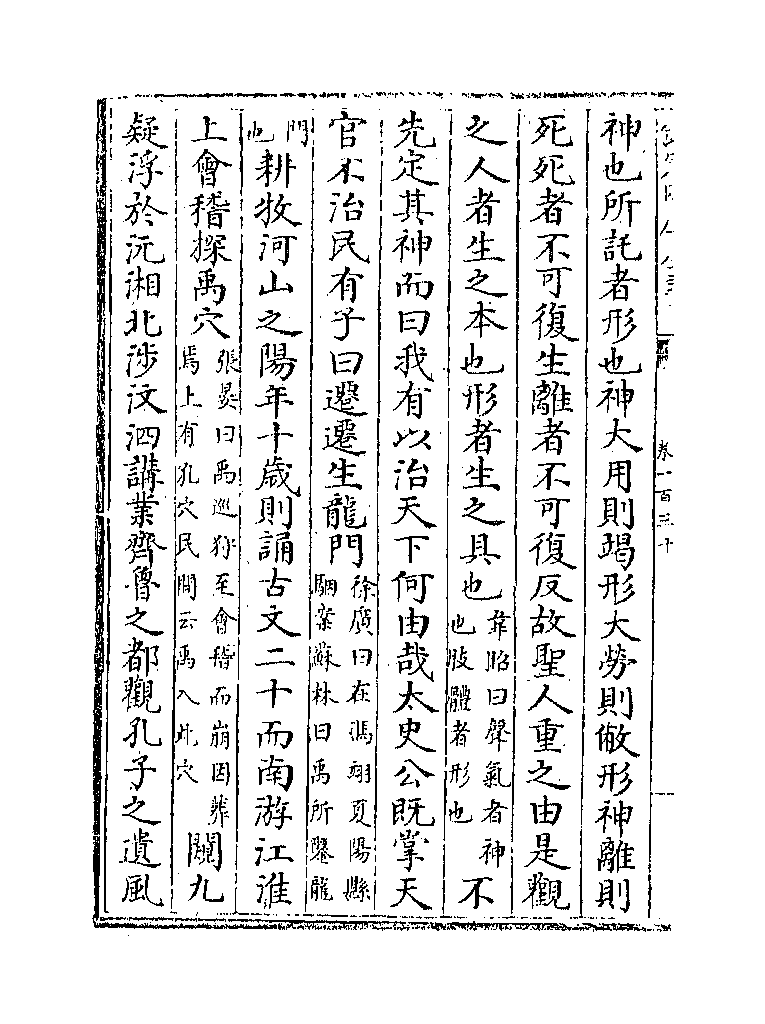 卷一百三十
神也所託者形也神大用則竭形大勞則敝形神離則
死死者不可復生離者不可復反故聖人重之由是觀
之人者生之本也形者生之具也韋昭曰聲氣者神也肢體者形也不
先定其神而曰我有以治天下何由哉太史公既掌天
官不治民有子曰遷遷生龍門徐廣曰在馮翊夏陽縣駰案蘇林曰禹所鑿龍
門也耕牧河山之陽年十歲則誦古文二十而南游江淮
上會稽探禹穴張晏曰禹巡狩至會稽而崩因葬焉上有孔穴民間云禹入此穴闚九
疑浮於沅湘北涉汶泗講業齊魯之都觀孔子之遺風